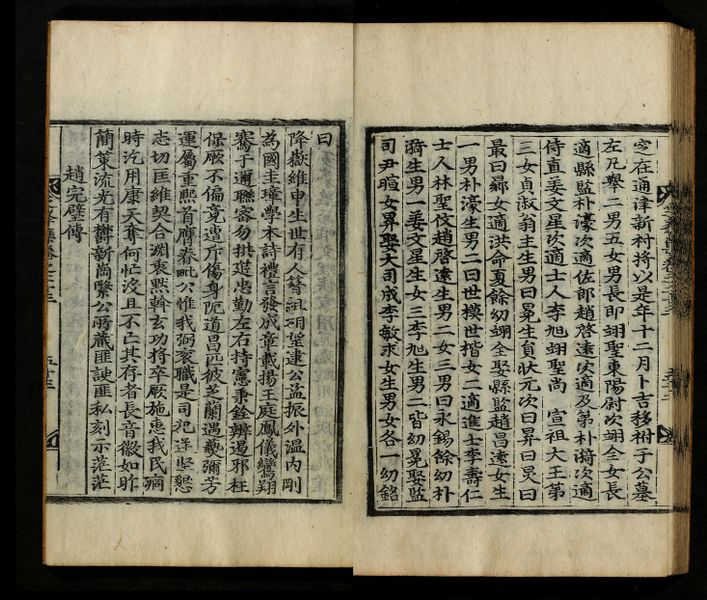 窆在通津新村將以是年十二月卜吉移祔于公墓
左凡擧二男五女男長即翊聖東陽尉次翊全女長
適縣監朴濠次適佐郎趙啓遠次適及第朴漪次適
侍直姜文星次適士人李旭翊聖尚 宣祖大王第
三女貞淑翁主生男曰冕生負狀元次曰昇曰炅曰
最曰鄽女適洪命夏餘幼翊全娶縣監趙昌遠女生
一男朴濠生男二曰世模世楷女二適進士李壽仁
士人林聖伩趙啓遠生男二女三男曰永錫餘幼朴
漪生男一姜文星生女三李旭生男二皆幼冕娶監
司尹暄女昇娶大司成李敏求女生男女各一幼銘
曰
降嶽維申生世有人簪沮硐望逮公孟振外溫內剛
為國圭璋學本詩禮言發成章載揚王庭鳳儀鸞翔
騫于邇聯密勿拱逆忠勤左右持憲秉銓辦遏邪枉
保厥不偏竟遭斥傷身阨道昌匹彼芝蘭遇爇彌芳
運屬重熙首膺眷毗公惟我弼袞職是司夙逆堅懇
志切匡維契合淵衷默斡玄功將卒厥施惠我民痌
時汔用康天奪何忙沒且不亡其存者長音徽如昨
簡策流光有欝新崗繄公所藏匪諛匪私刻示茫茫
趙完璧傳